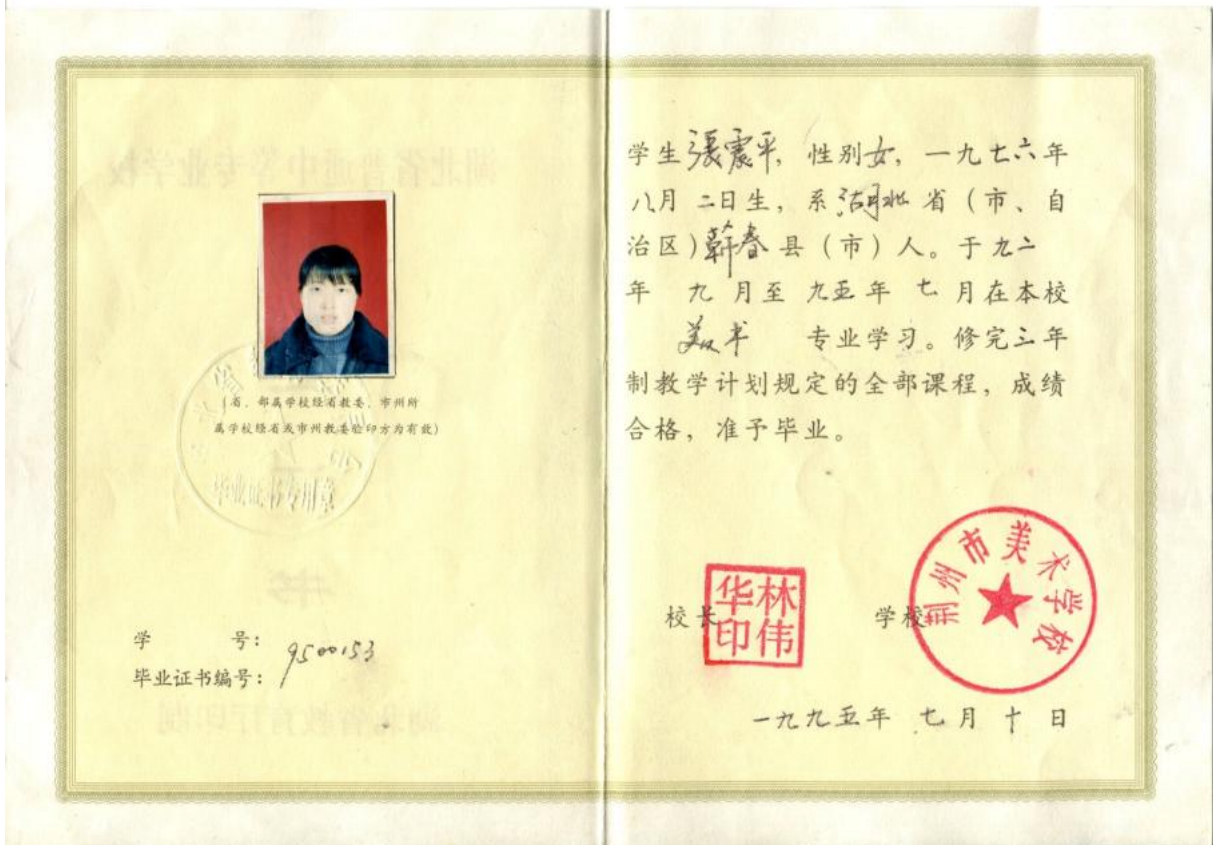 (省、部属学校经省教委、市州所
属学校经省或市州教委验印方为有效)
毕业证书专用章
学 号:
9500153
毕业证书编号:
学生張震平, 性别女, 一九七六年
八月二日生, 系湖北省(市、自
治区)蕲春县(市)人。于九二
年 九月至九五年 七月在本校
美术 专业学习。修完三年
制教学计划规定的全部课程, 成绩
合格, 准予毕业。
校长
林伟华印
学校
荆州市美术学校
一九九五年 七月十日